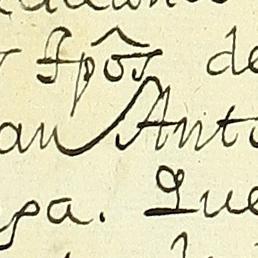 Ipôs de
an Anto
ga. Que